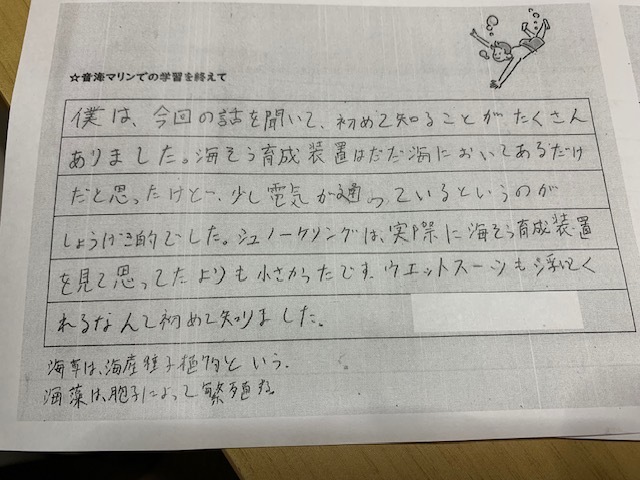 ☆音海マリンでの学習を終えて
僕は、今回の話を聞いて、初めて知ることがたくさん
ありました。海そう育成装置はただ海においてあるだけ
だと思ったけど、少し電気が通っているというのが
しょうげき的でした。シュノーケリングは、実際に海そう育成装置
を見て思ってたよりも小さかったです。ウエットスーツも浮いてく
れるなんて初めて知りました。
海草は、海産種子植物という。
海藻は、胞子によって繁殖する